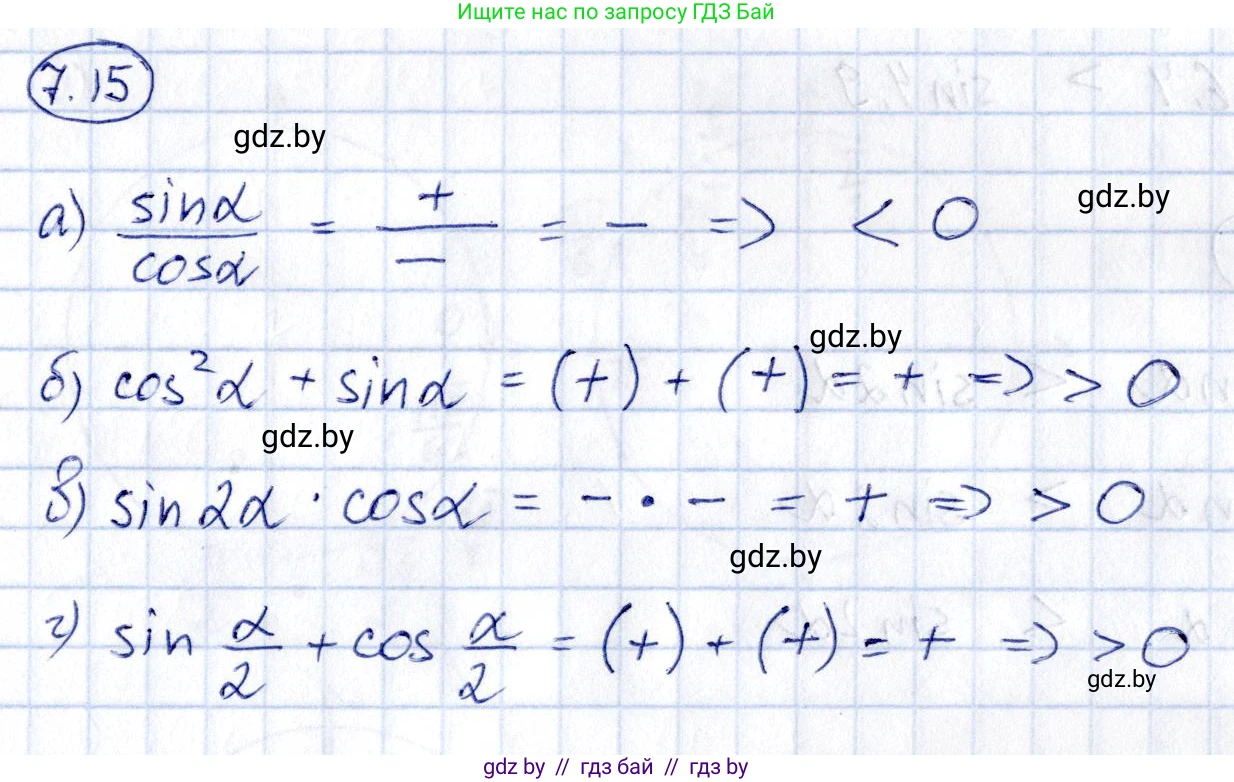 Ищите нас по запросу ГДЗ Бай
7.15
gdz.by
а) sinα/cosα = +/− = − => < 0
gdz.by
gdz.by
б) cos²α + sinα = (+) + (+) = + => > 0
gdz.by
в) sin2α · cosα = − · − = + => > 0
gdz.by
г) sin α/2 + cos α/2 = (+) + (+) = + => > 0
gdz.by
gdz.by // гдз бай // gdz.by